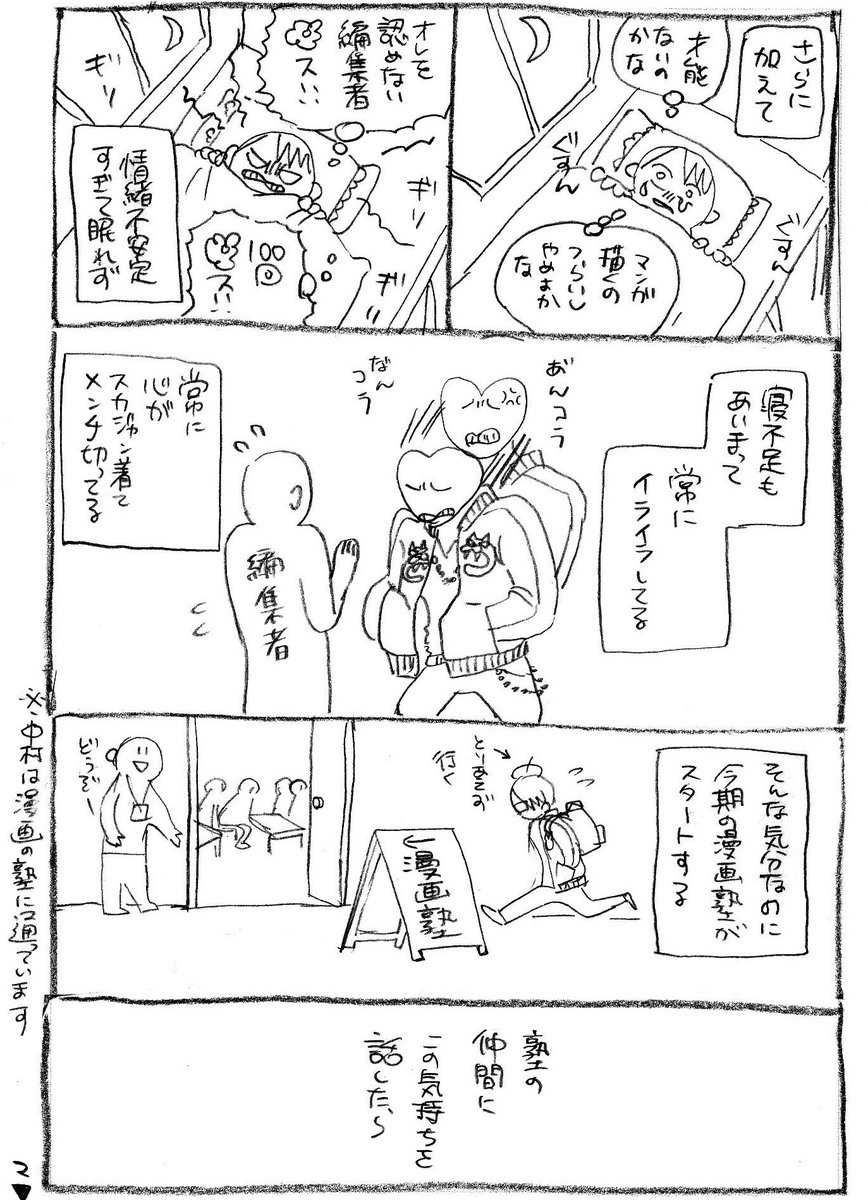 さらに
加えて
才能
ないの
かな
ぐすん
ぐすん
マンガ
描くの
つらいし
やめよか
な
オレを
認めない
編集者
ス…
ギリ
ギリ
ギリ
100回
ス…
情緒不安定
すぎて眠れず
寝不足も
あいまって
常に
イライラしてる
あんコラ
なん
コラ
編集者
常に
心が
スカジャン着て
メンチ切ってる
そんな気分なのに
今期の漫画塾が
スタートする
とりあえず
行く
←漫画塾
どうぞー
塾の
仲間に
この気持ちを
話したら
※中村は漫画の塾に通っています
2